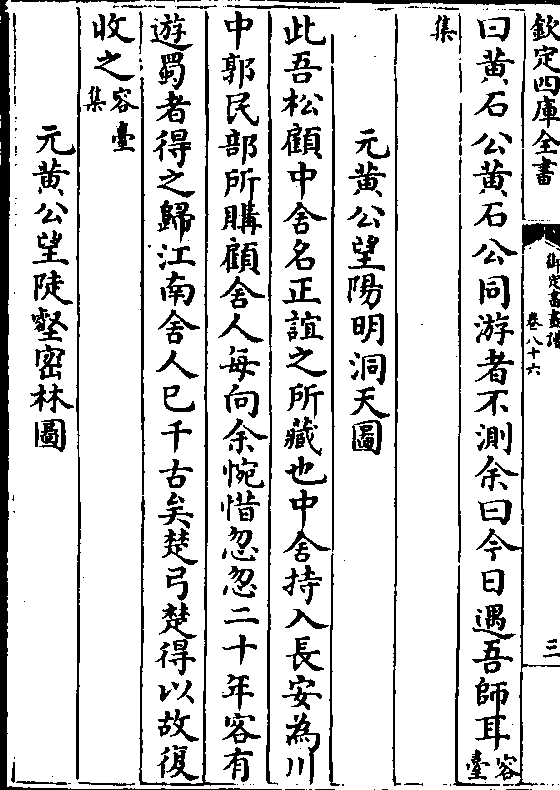 欽定四庫全書
御定書畫譜
卷八十六
三
曰黄石公黄石公同游者不測余曰今日遇吾師耳容臺
集
元黄公望陽明洞天圖
此吾松顧中舍名正誼之所藏也中舍持入長安為川
中郭民部所購顧舍人每向余惋惜忽忽二十年客有
遊蜀者得之歸江南舍人已千古矣楚弓楚得以故復
收之容臺集
元黄公望陡壑密林圖